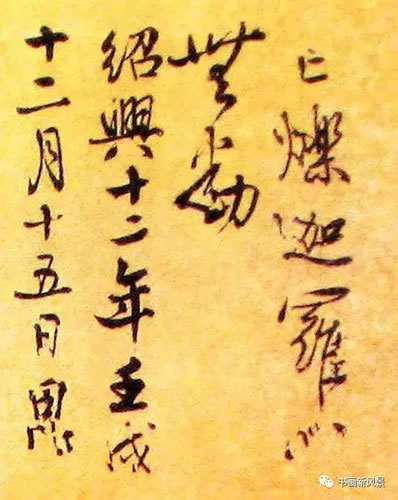 亡爍迦羅心
無動
紹興十二年壬戌
十二月十五日
书画新风景